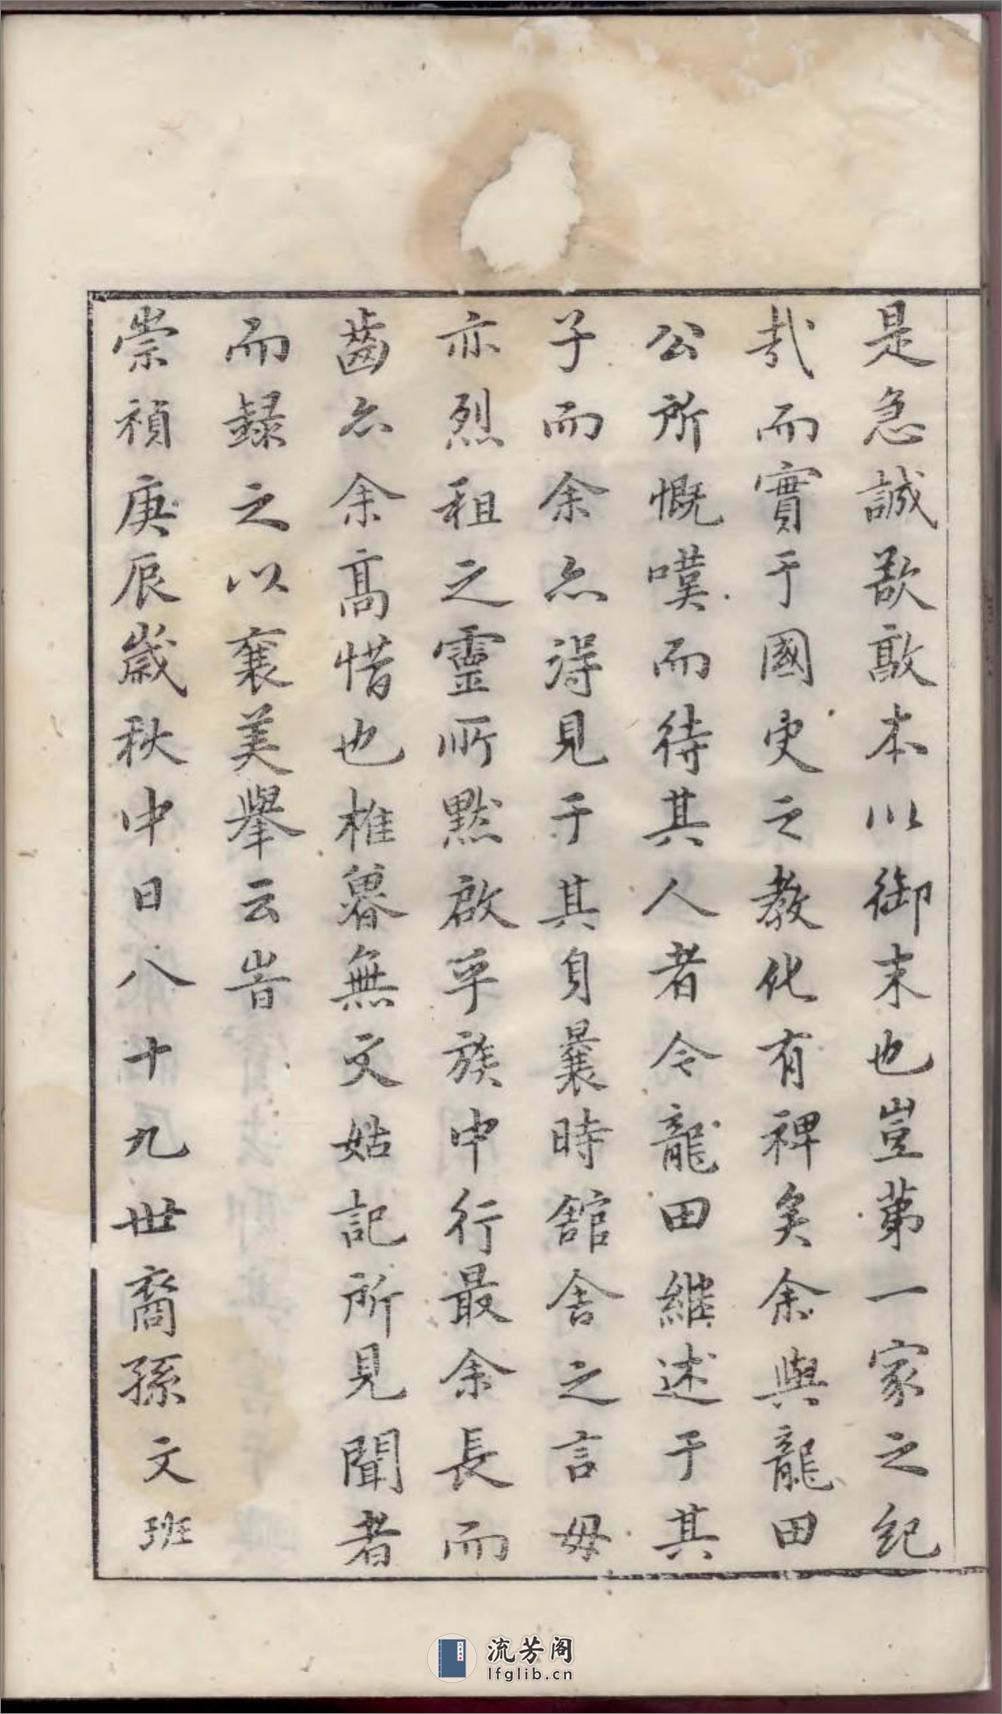 是急誠敦本以御末也豈第一家之紀
哉而實于國史之教化有裨矣余與龍田
公所慨嘆而待其人者令龍田継述于其
子而余亦淂見于其身曩時舘舍之言毋
亦烈祖之靈所黙啟乎族中行最余長而
齒亦余髙惜也椎魯無文姑記所見聞者
而録之以襄美舉云旹
崇禎庚辰歲秋中日八十九世裔孫文班
流芳阁
lfglib.cn